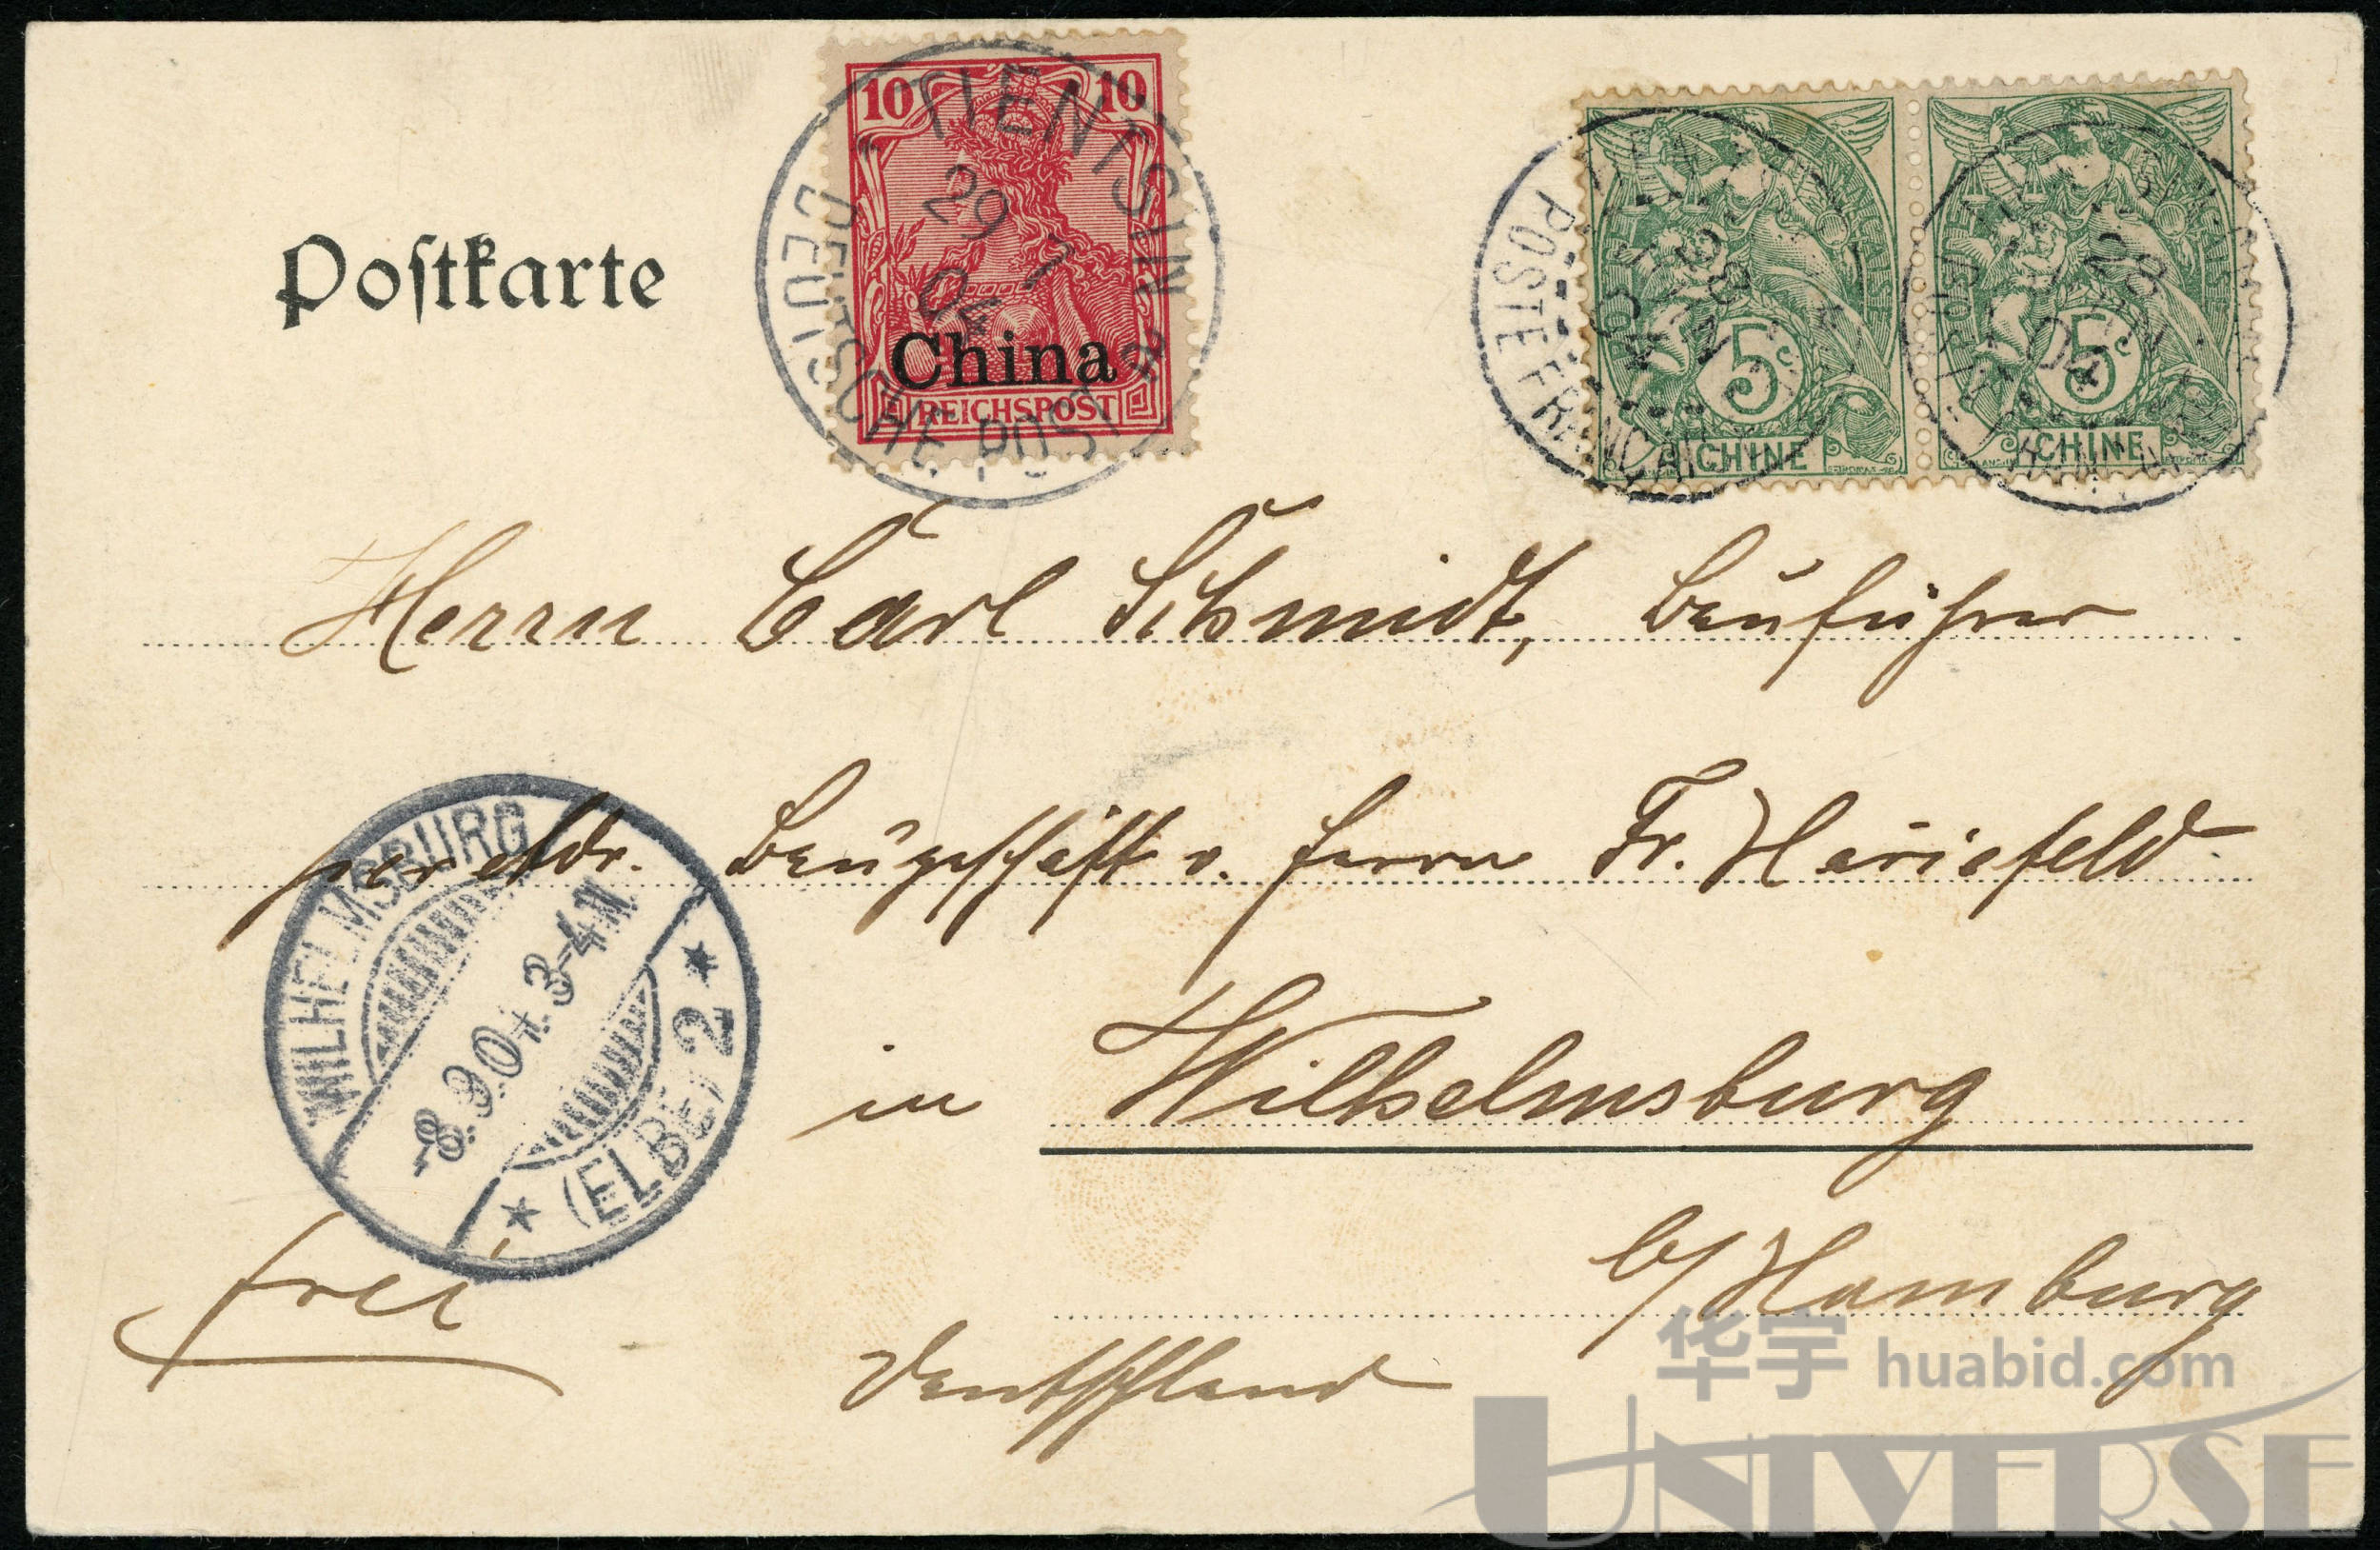 10 10
China
REICHSPOST
TIENTSIN
29 7
04
DEUTSCHE POST
5c 5c
CHINE CHINE
POSTE FRANÇAISE
28
04
Postkarte
Herrn Carl Schmidt, Bauführer
Baugeschäft v. Herrn Fr.
in Wilhelmsburg
b/Hamburg
Deutschland
frei
WILHELMSBURG
8.9.04. 3-4N
(ELBE) 2
华宇 huabid.com
UNIVERSE